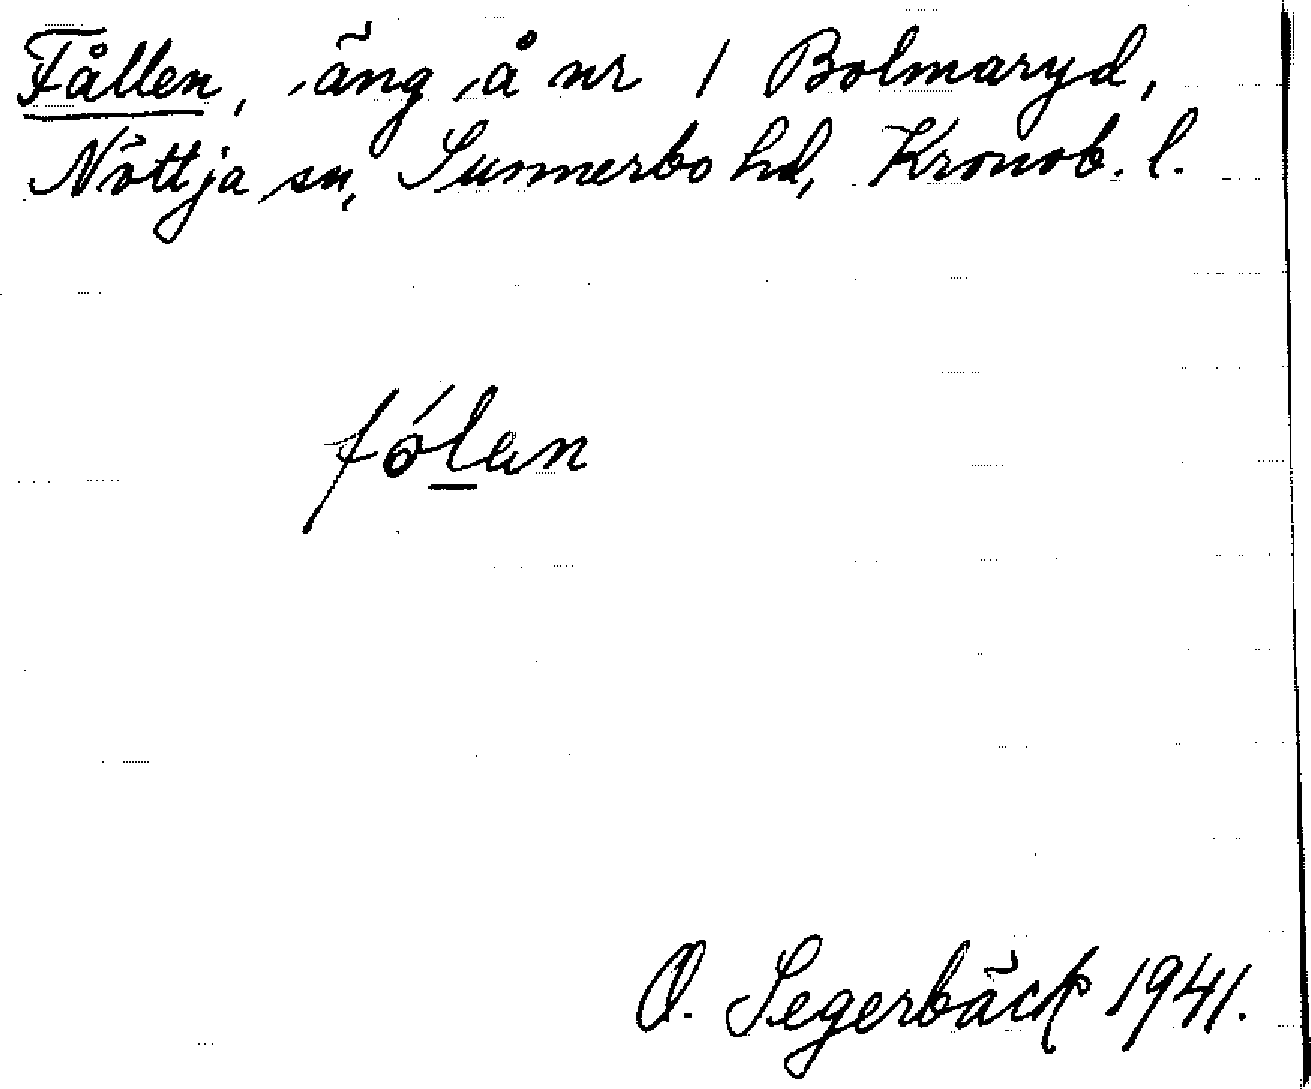 Fållen, äng å nr 1 Bolmaryd,
Nöttja sn, Sunnerbo hd, Kronob. l.
fó̱lan
O. Segerbäck 1941.